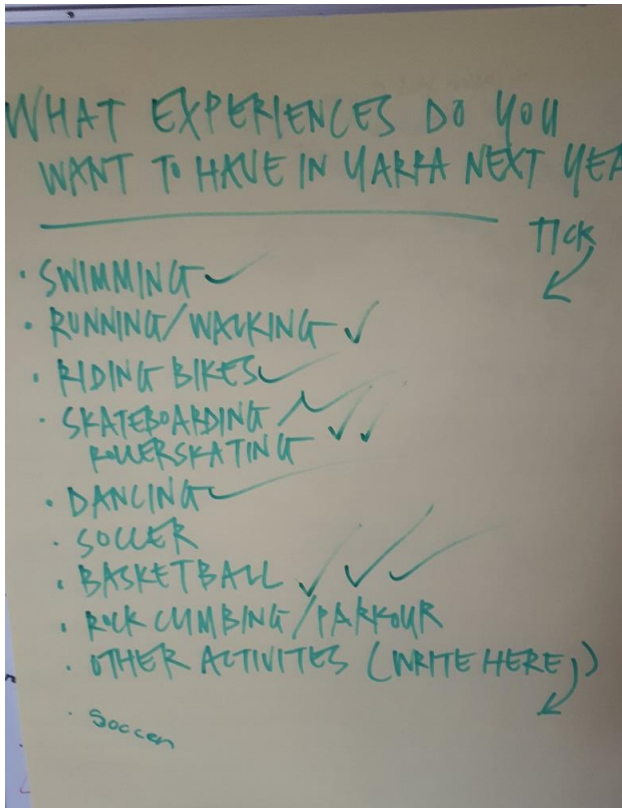 WHAT EXPERIENCES DO YOU
WANT TO HAVE IN YARRA NEXT YEA
TICK
· SWIMMING ✓
· RUNNING/WALKING ✓
· RIDING BIKES ✓
· SKATEBOARDING / ✓✓
ROLLERSKATING ✓
· DANCING ✓
· SOCCER
· BASKETBALL ✓ ✓ ✓
· ROCK CLIMBING/PARKOUR
· OTHER ACTIVITES (WRITE HERE)
· Soccer